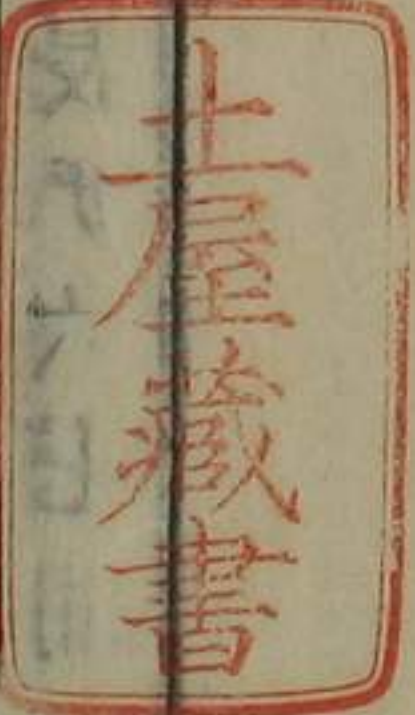 土屋藏書